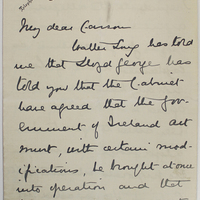 My dear Carson
Walter Long has told
me that Lloyd George has
told you that the Cabinet
have agreed that the Gov-
ernment of Ireland Act
must, with certain mod-
ifications, be brought at once
into operation and that